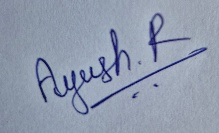 Ayush. R